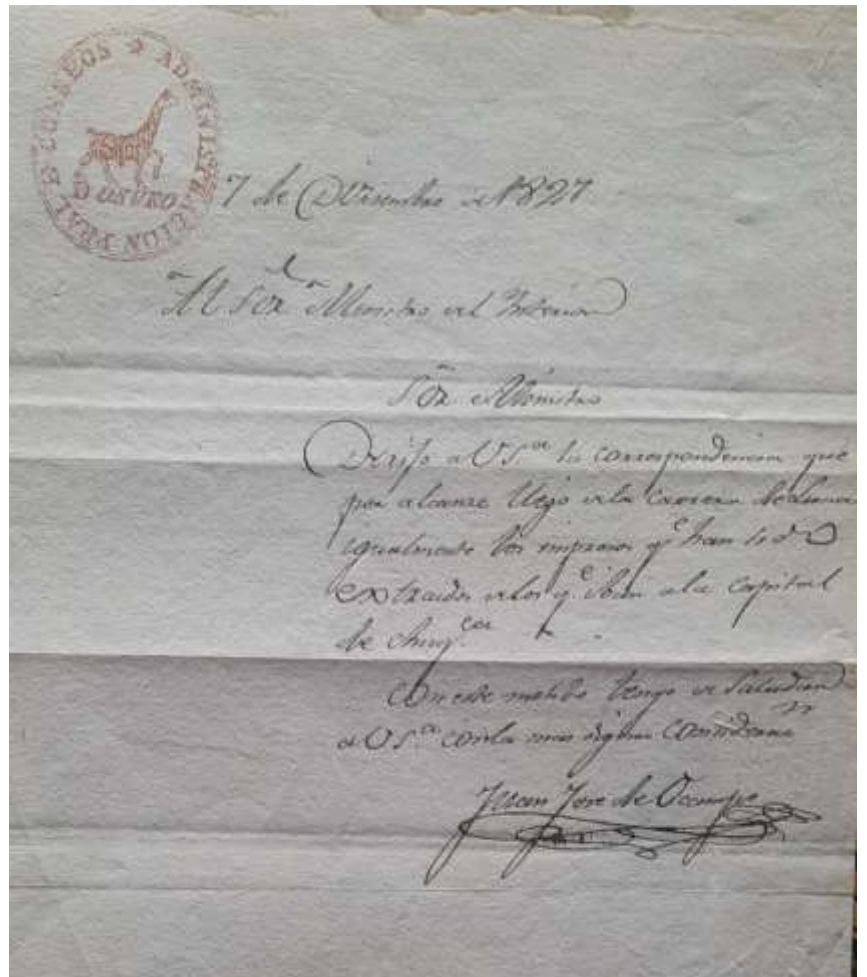 ADMINISTRACION PRAL D CORREOS
ORURO
7 de Diciembre de 1827
Al Sor Ministro del Interior
Sor Ministro
Dirijo a US.ª la correspondencia que
por alcanze llegó de la carrera de Lima
igualmente los impresos q.e han sido
extraidos de los q.e iban a la capital
de Chuq.ca
Con este motibo tengo de saludar
a US.ª con la mas digna
Juan Jose de Ocampo